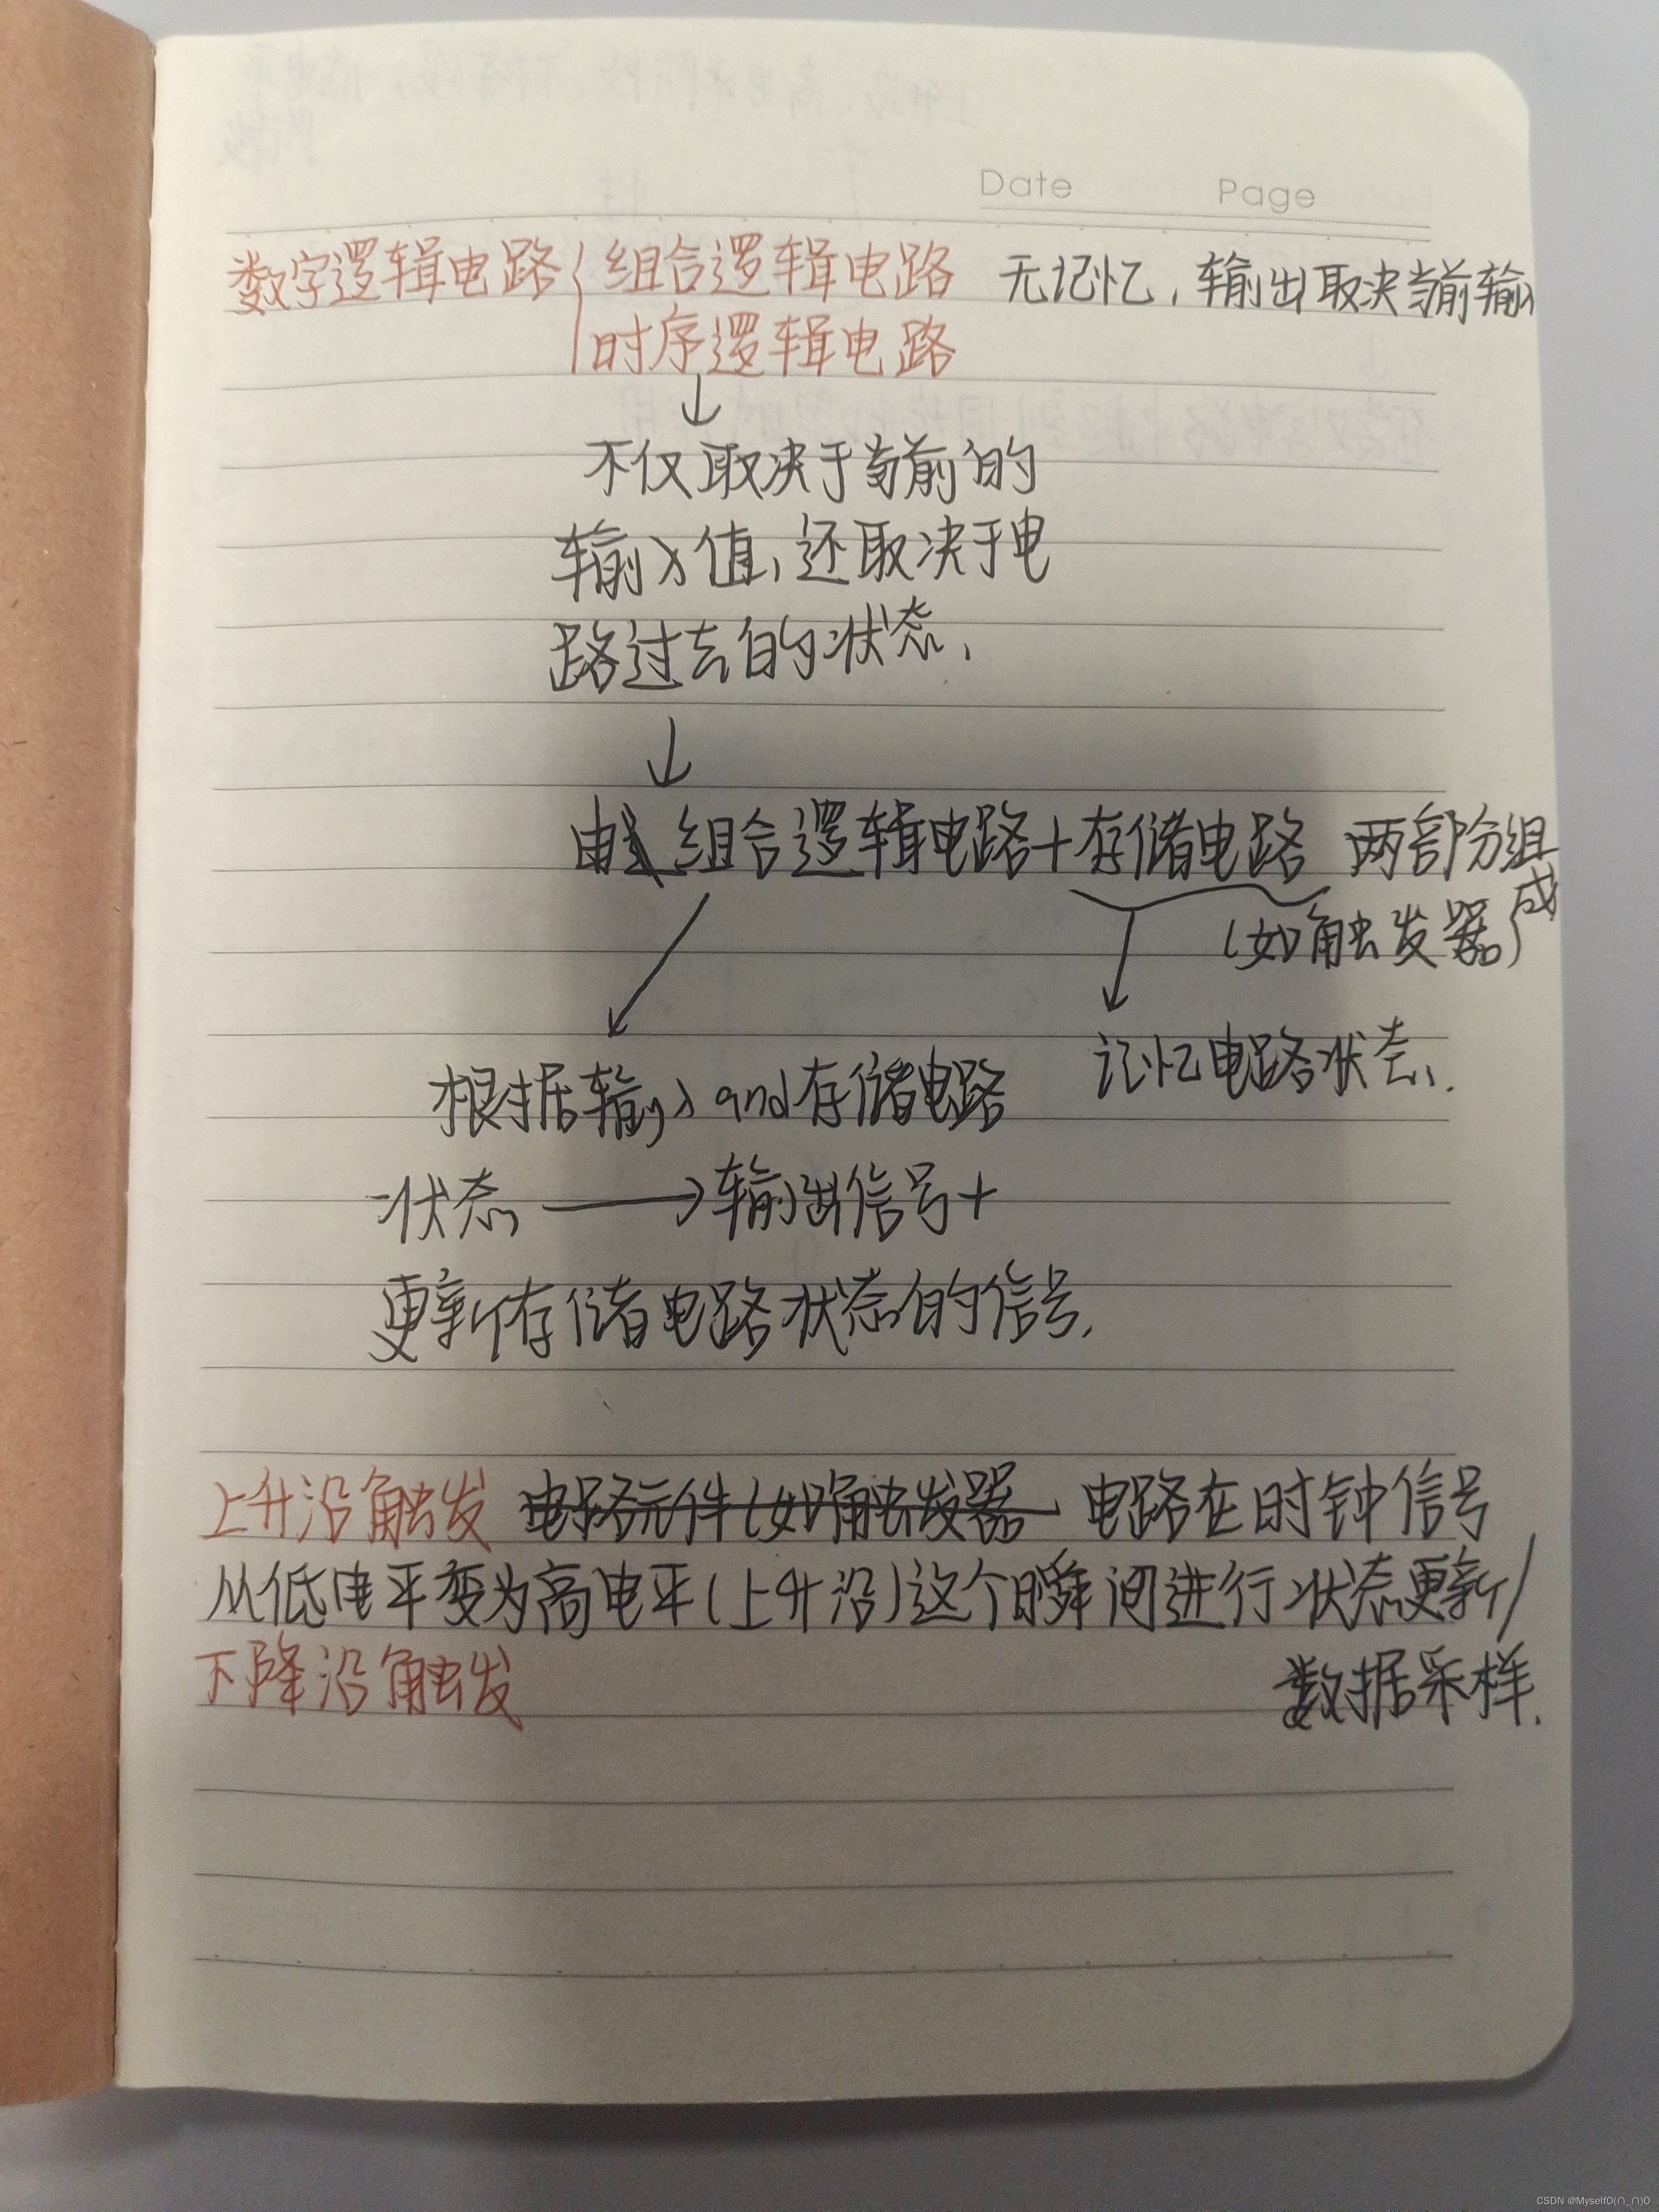 Date Page
数字逻辑电路{组合逻辑电路 无记忆,输出取决当前输入
时序逻辑电路
↓
不仅取决于当前的
输入值,还取决于电
路过去的状态.
↓
由 组合逻辑电路+存储电路 两部分组成
(如触发器)
记忆电路状态.
根据输入and存储电路
状态→输出信号+
更新存储电路状态的信号.
上升沿触发 电路元件(如触发器 电路在时钟信号
从低电平变为高电平(上升沿)这个瞬间进行状态更新/
下降沿触发 数据采样.
CSDN @Myself0(∩_∩)0